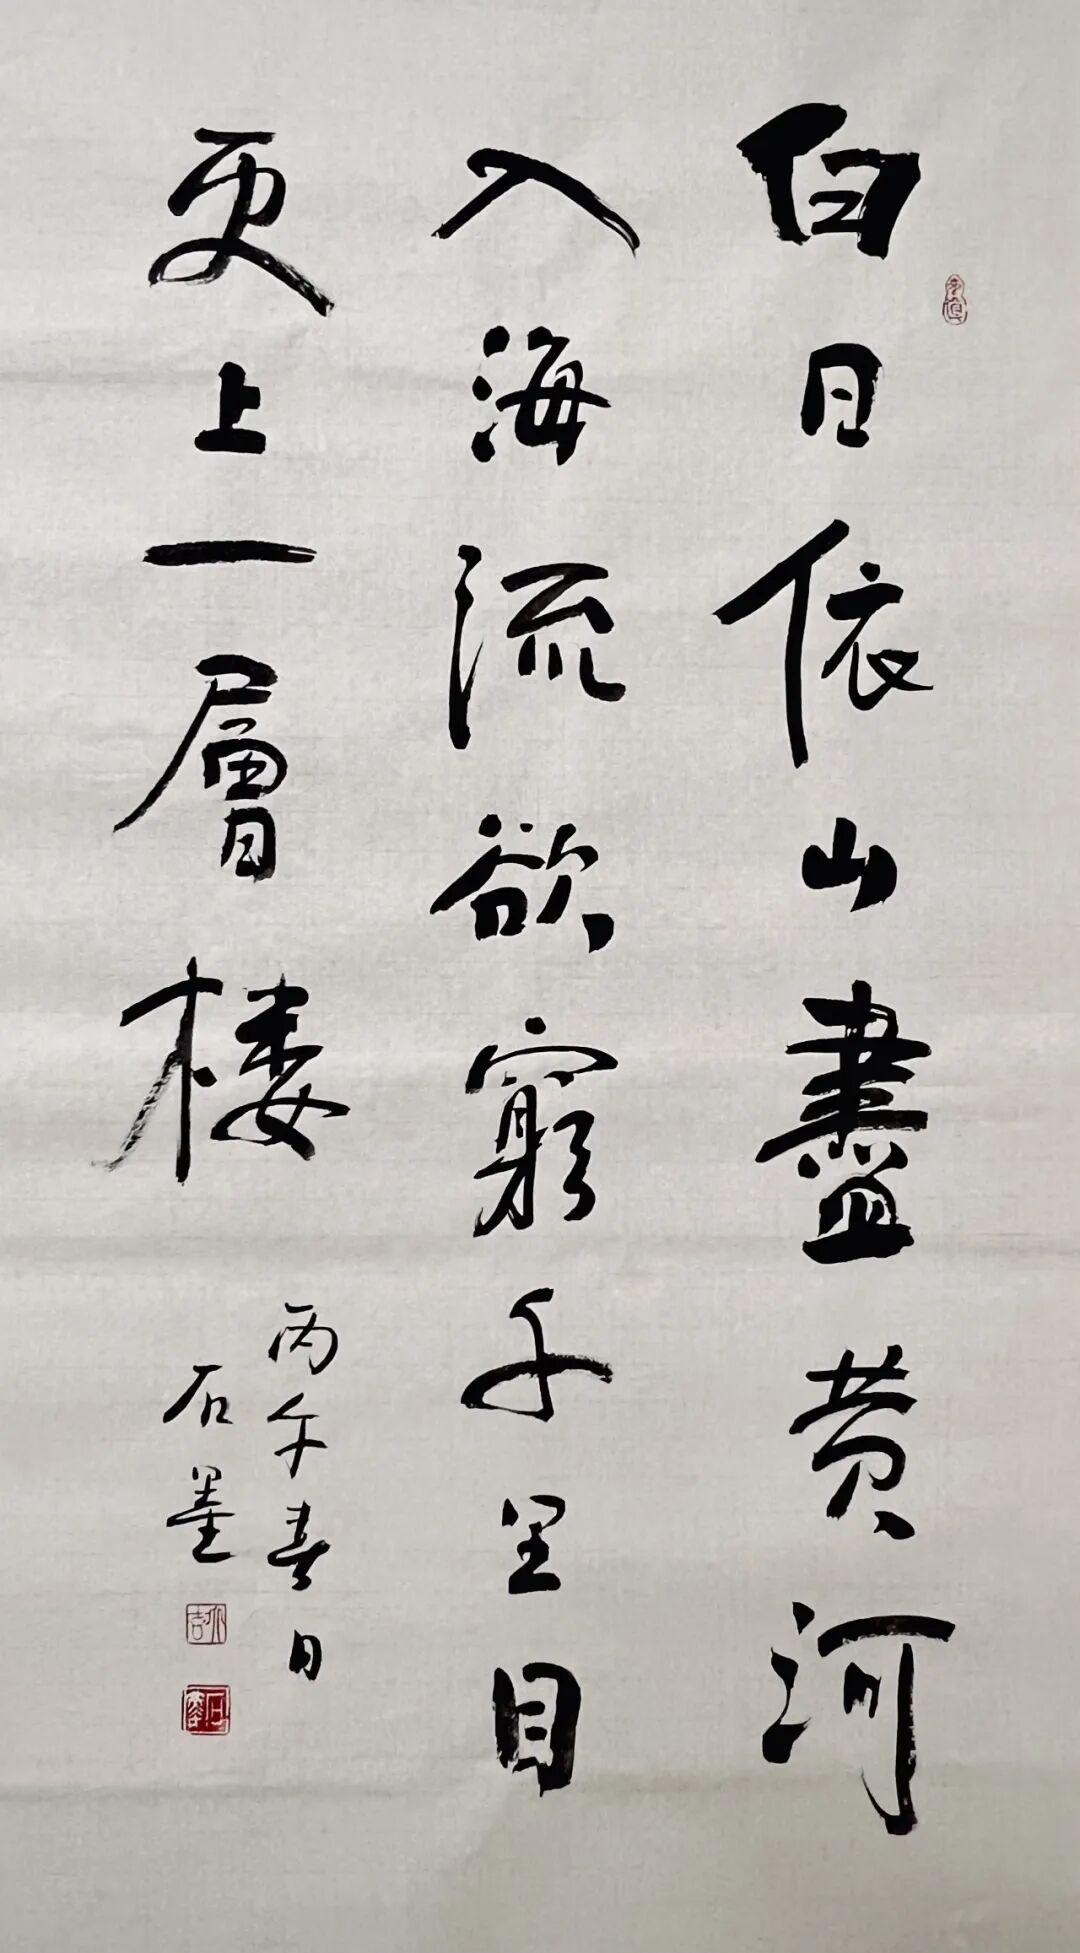 白日依山盡黄河
入海流欲窮千里目
更上一層楼
丙午春日
石墨